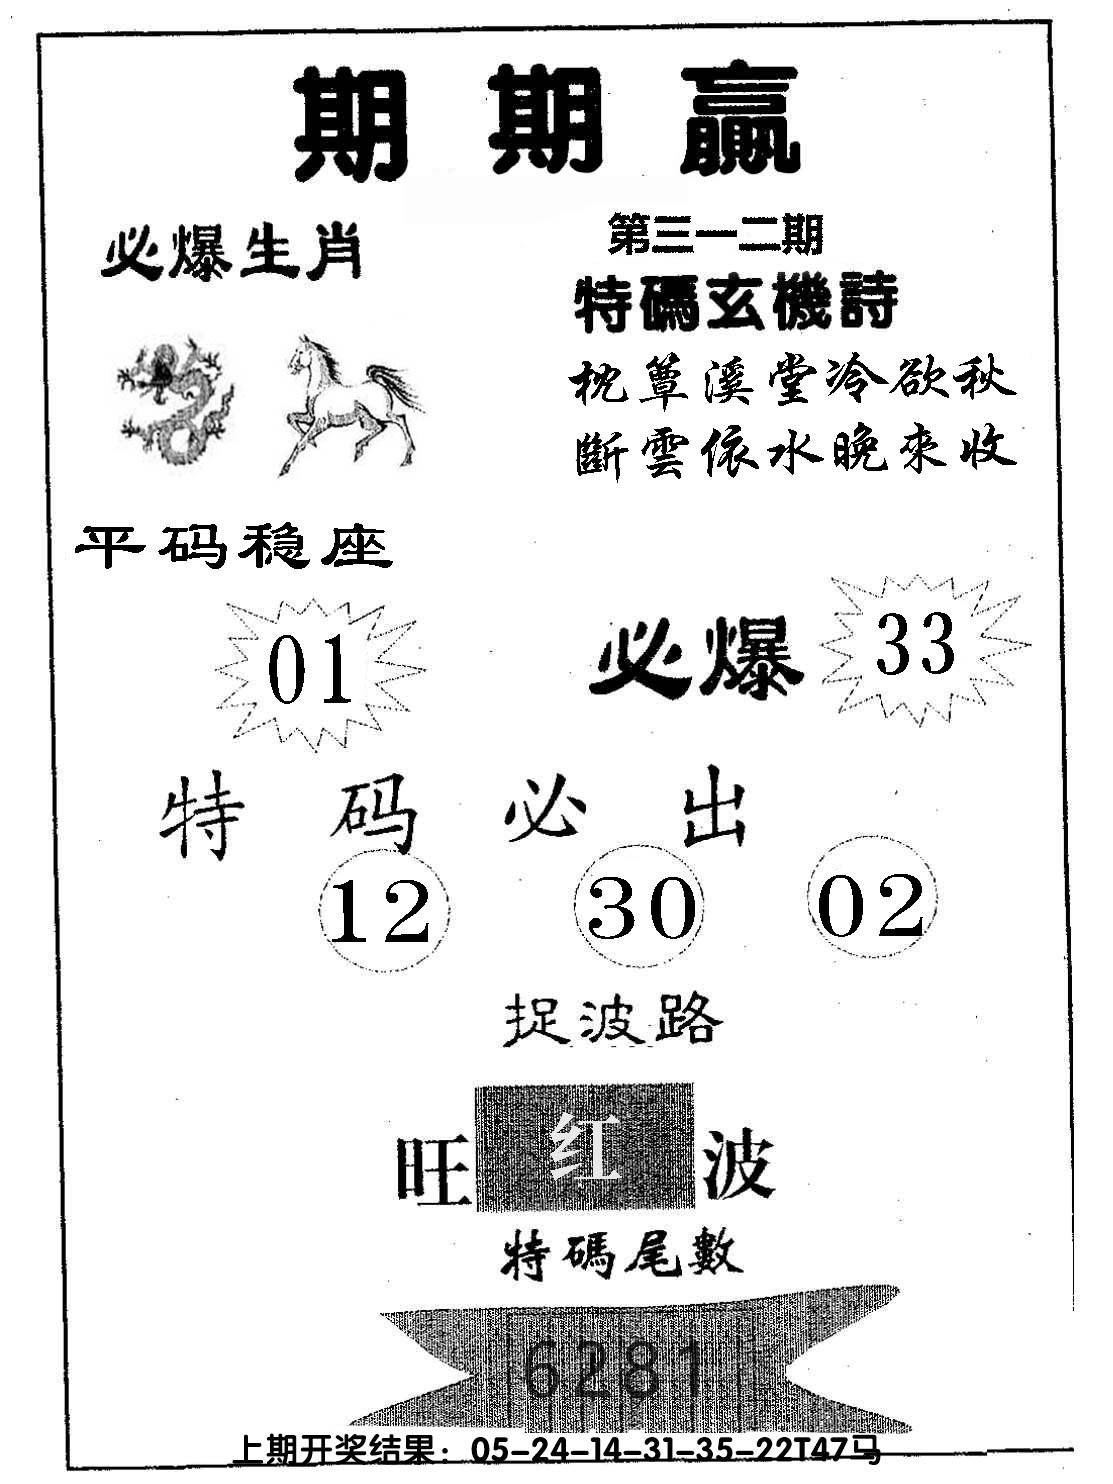 期期赢
必爆生肖
第三一二期
特碼玄機詩
枕蕈溪堂冷欲秋
斷雲依水晚來收
平码稳座
01
必爆 33
特码必出
12 30 02
捉波路
旺 红 波
特碼尾數
6281
上期开奖结果：05-24-14-31-35-22T47马